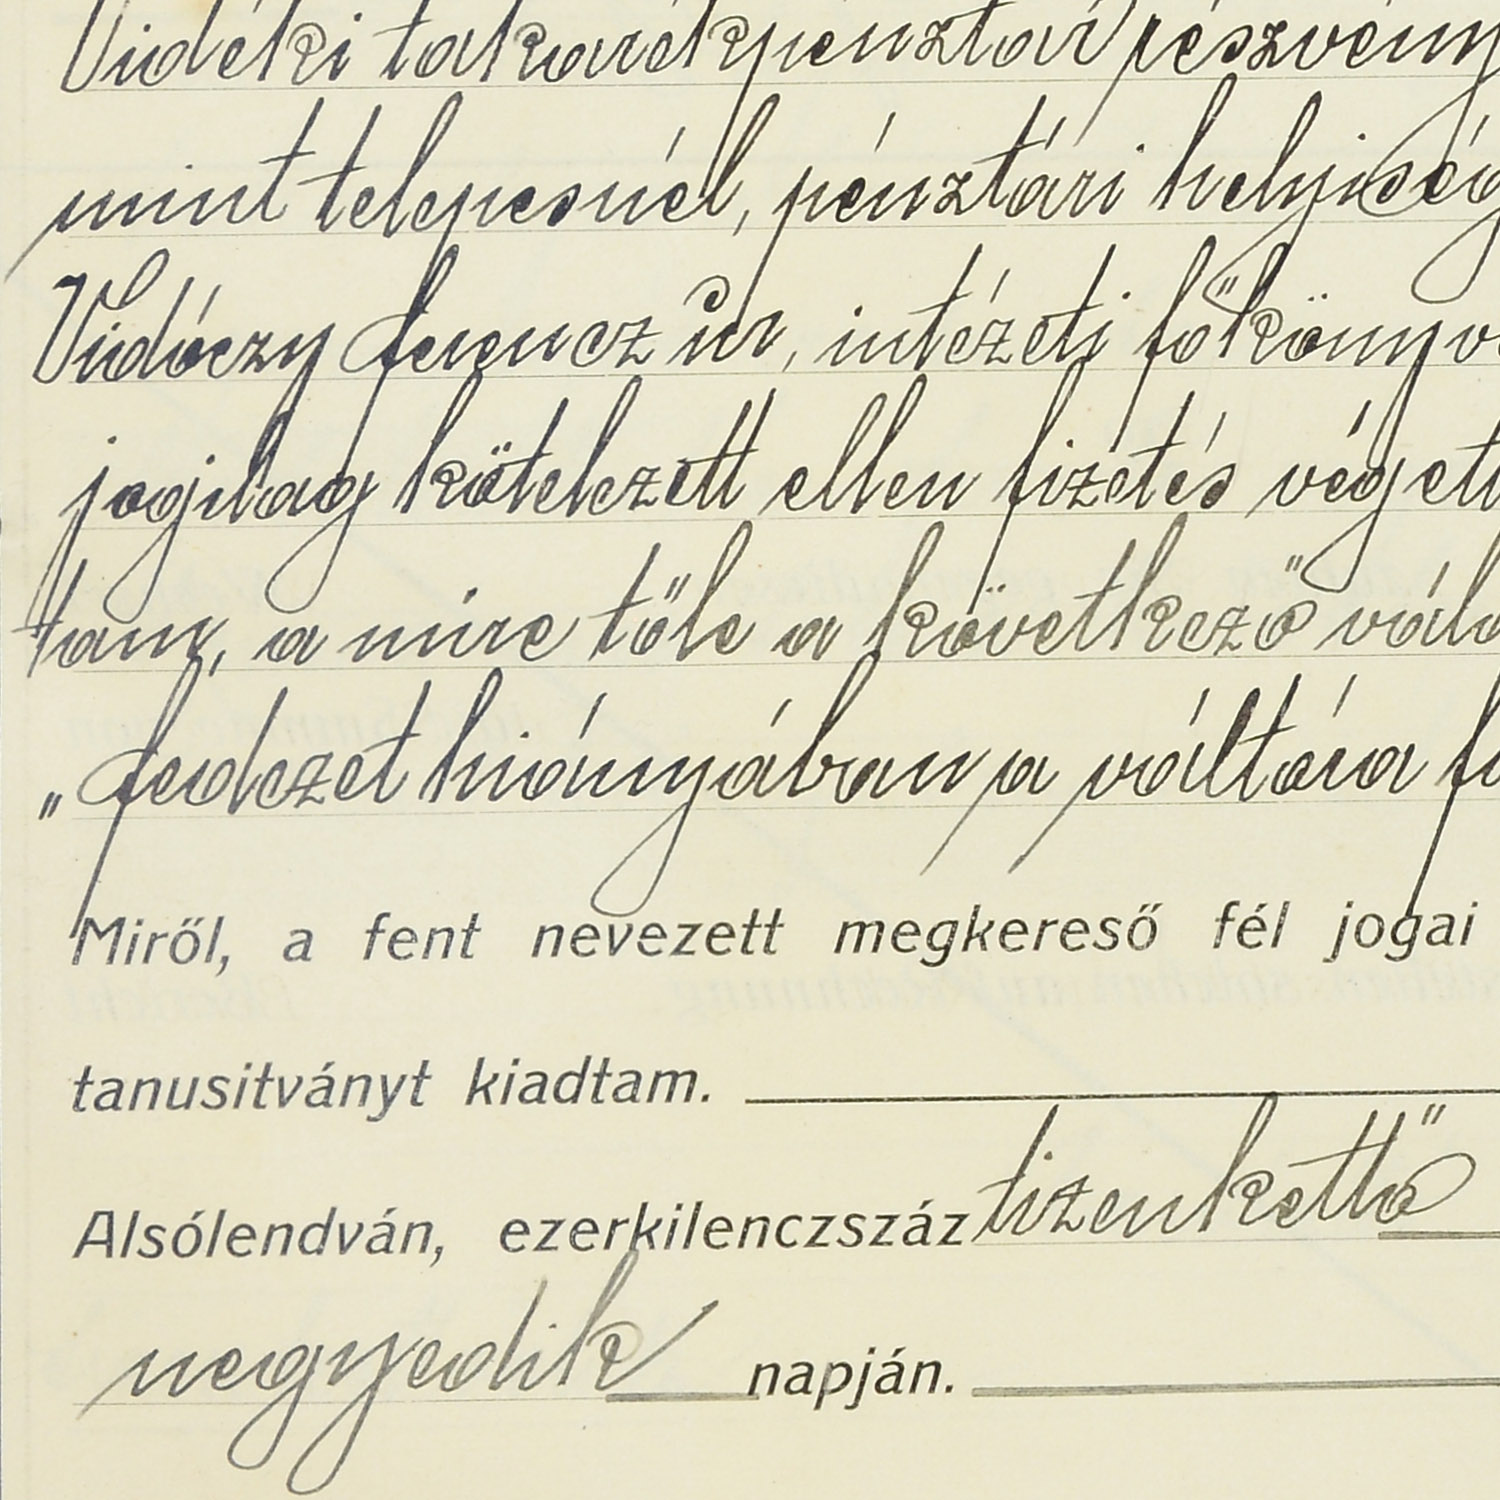 Vidéki takarékpénztár részvény
mint telepesnél, pénztári helyiség
Vidóczy Ferencz úr, intézeti főkönyv
jogilag kötelezett ellen fizetés végett
tam, a mire tőle a következő vála
„fedezet hiányában a váltóra fi
Miről, a fent nevezett megkereső fél jogai
tanusitványt kiadtam.
Alsólendván, ezerkilenczszáz tizenkettő
negyedik napján.